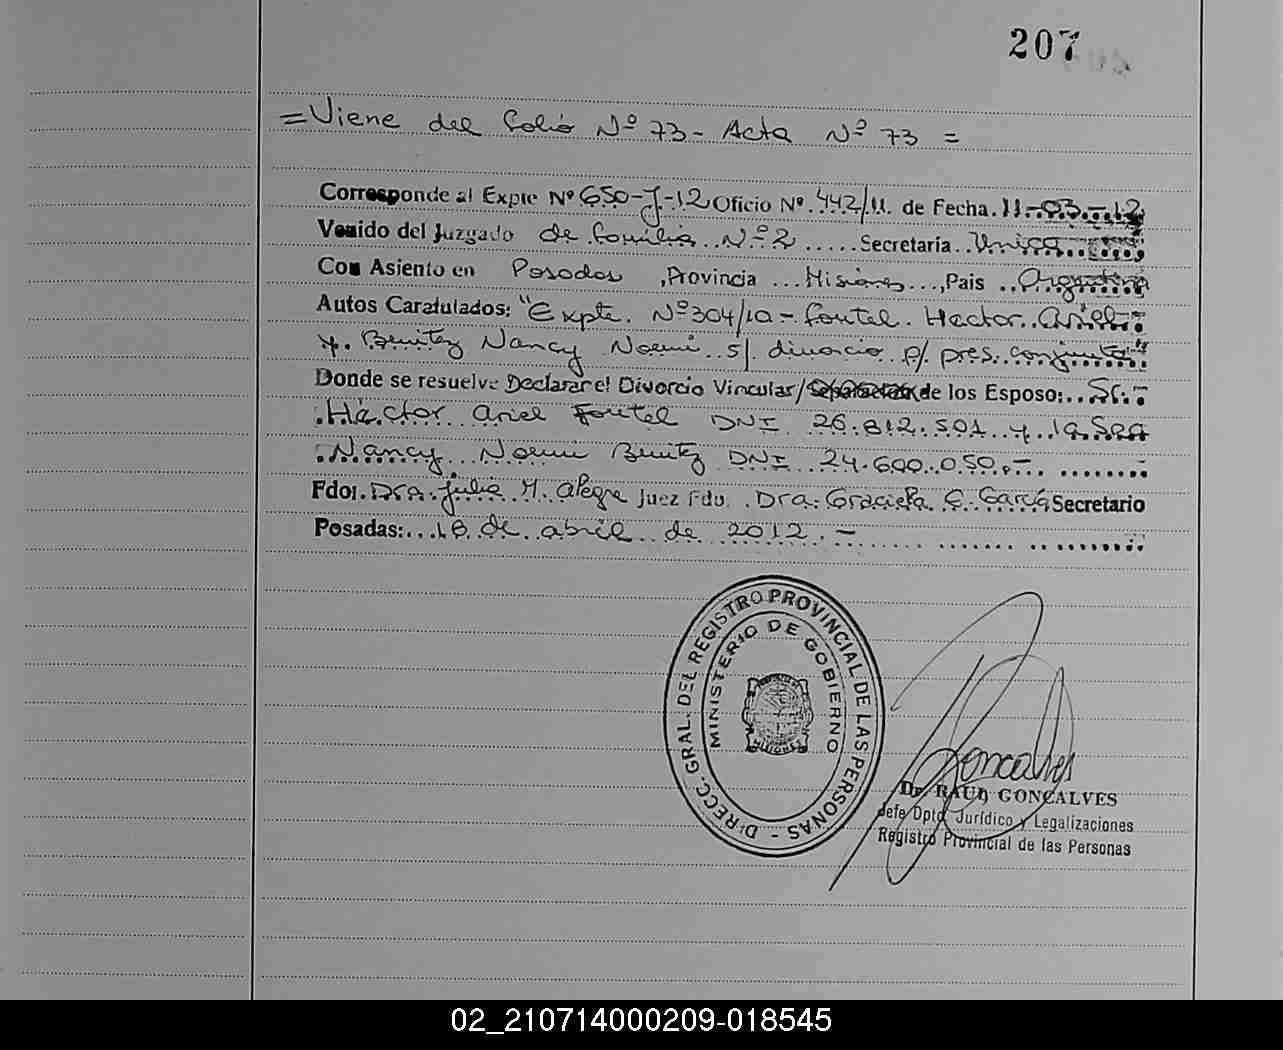 207
=Viene del folio Nº 73- Acta Nº 73 =
Corresponde al Expte Nº 650-J-12 Oficio Nº 442/11 de Fecha 11-03-12
Venido del Juzgado de familia Nº 2 Secretaría Unica
Con Asiento en Posadas, Provincia Misiones, Pais Argentina
Autos Caratulados: "Expte. Nº 304/10 - Foutel Hector Ariel
y. Benitez Nancy Noemi s/ divorcio p/ pres. conjunta"
Donde se resuelve Declarar el Divorcio Vincular/Separación de los Esposo: Sr.
Héctor Ariel Foutel DNI 26.812.501 y la Sra
Nancy Noemi Benitez DNI 24.600.050.-
Fdo: Dra. Julia M. Alegre Juez Fdo. Dra. Graciela C. García Secretario
Posadas: 18 de abril de 2012.-
DIRECC. GRAL. DEL REGISTRO PROVINCIAL DE LAS PERSONAS -
MINISTERIO DE GOBIERNO
MISIONES
Goncalves
Dr. RAUL GONCALVES
Jefe Dpto. Jurídico y Legalizaciones
Registro Provincial de las Personas
02_210714000209-018545